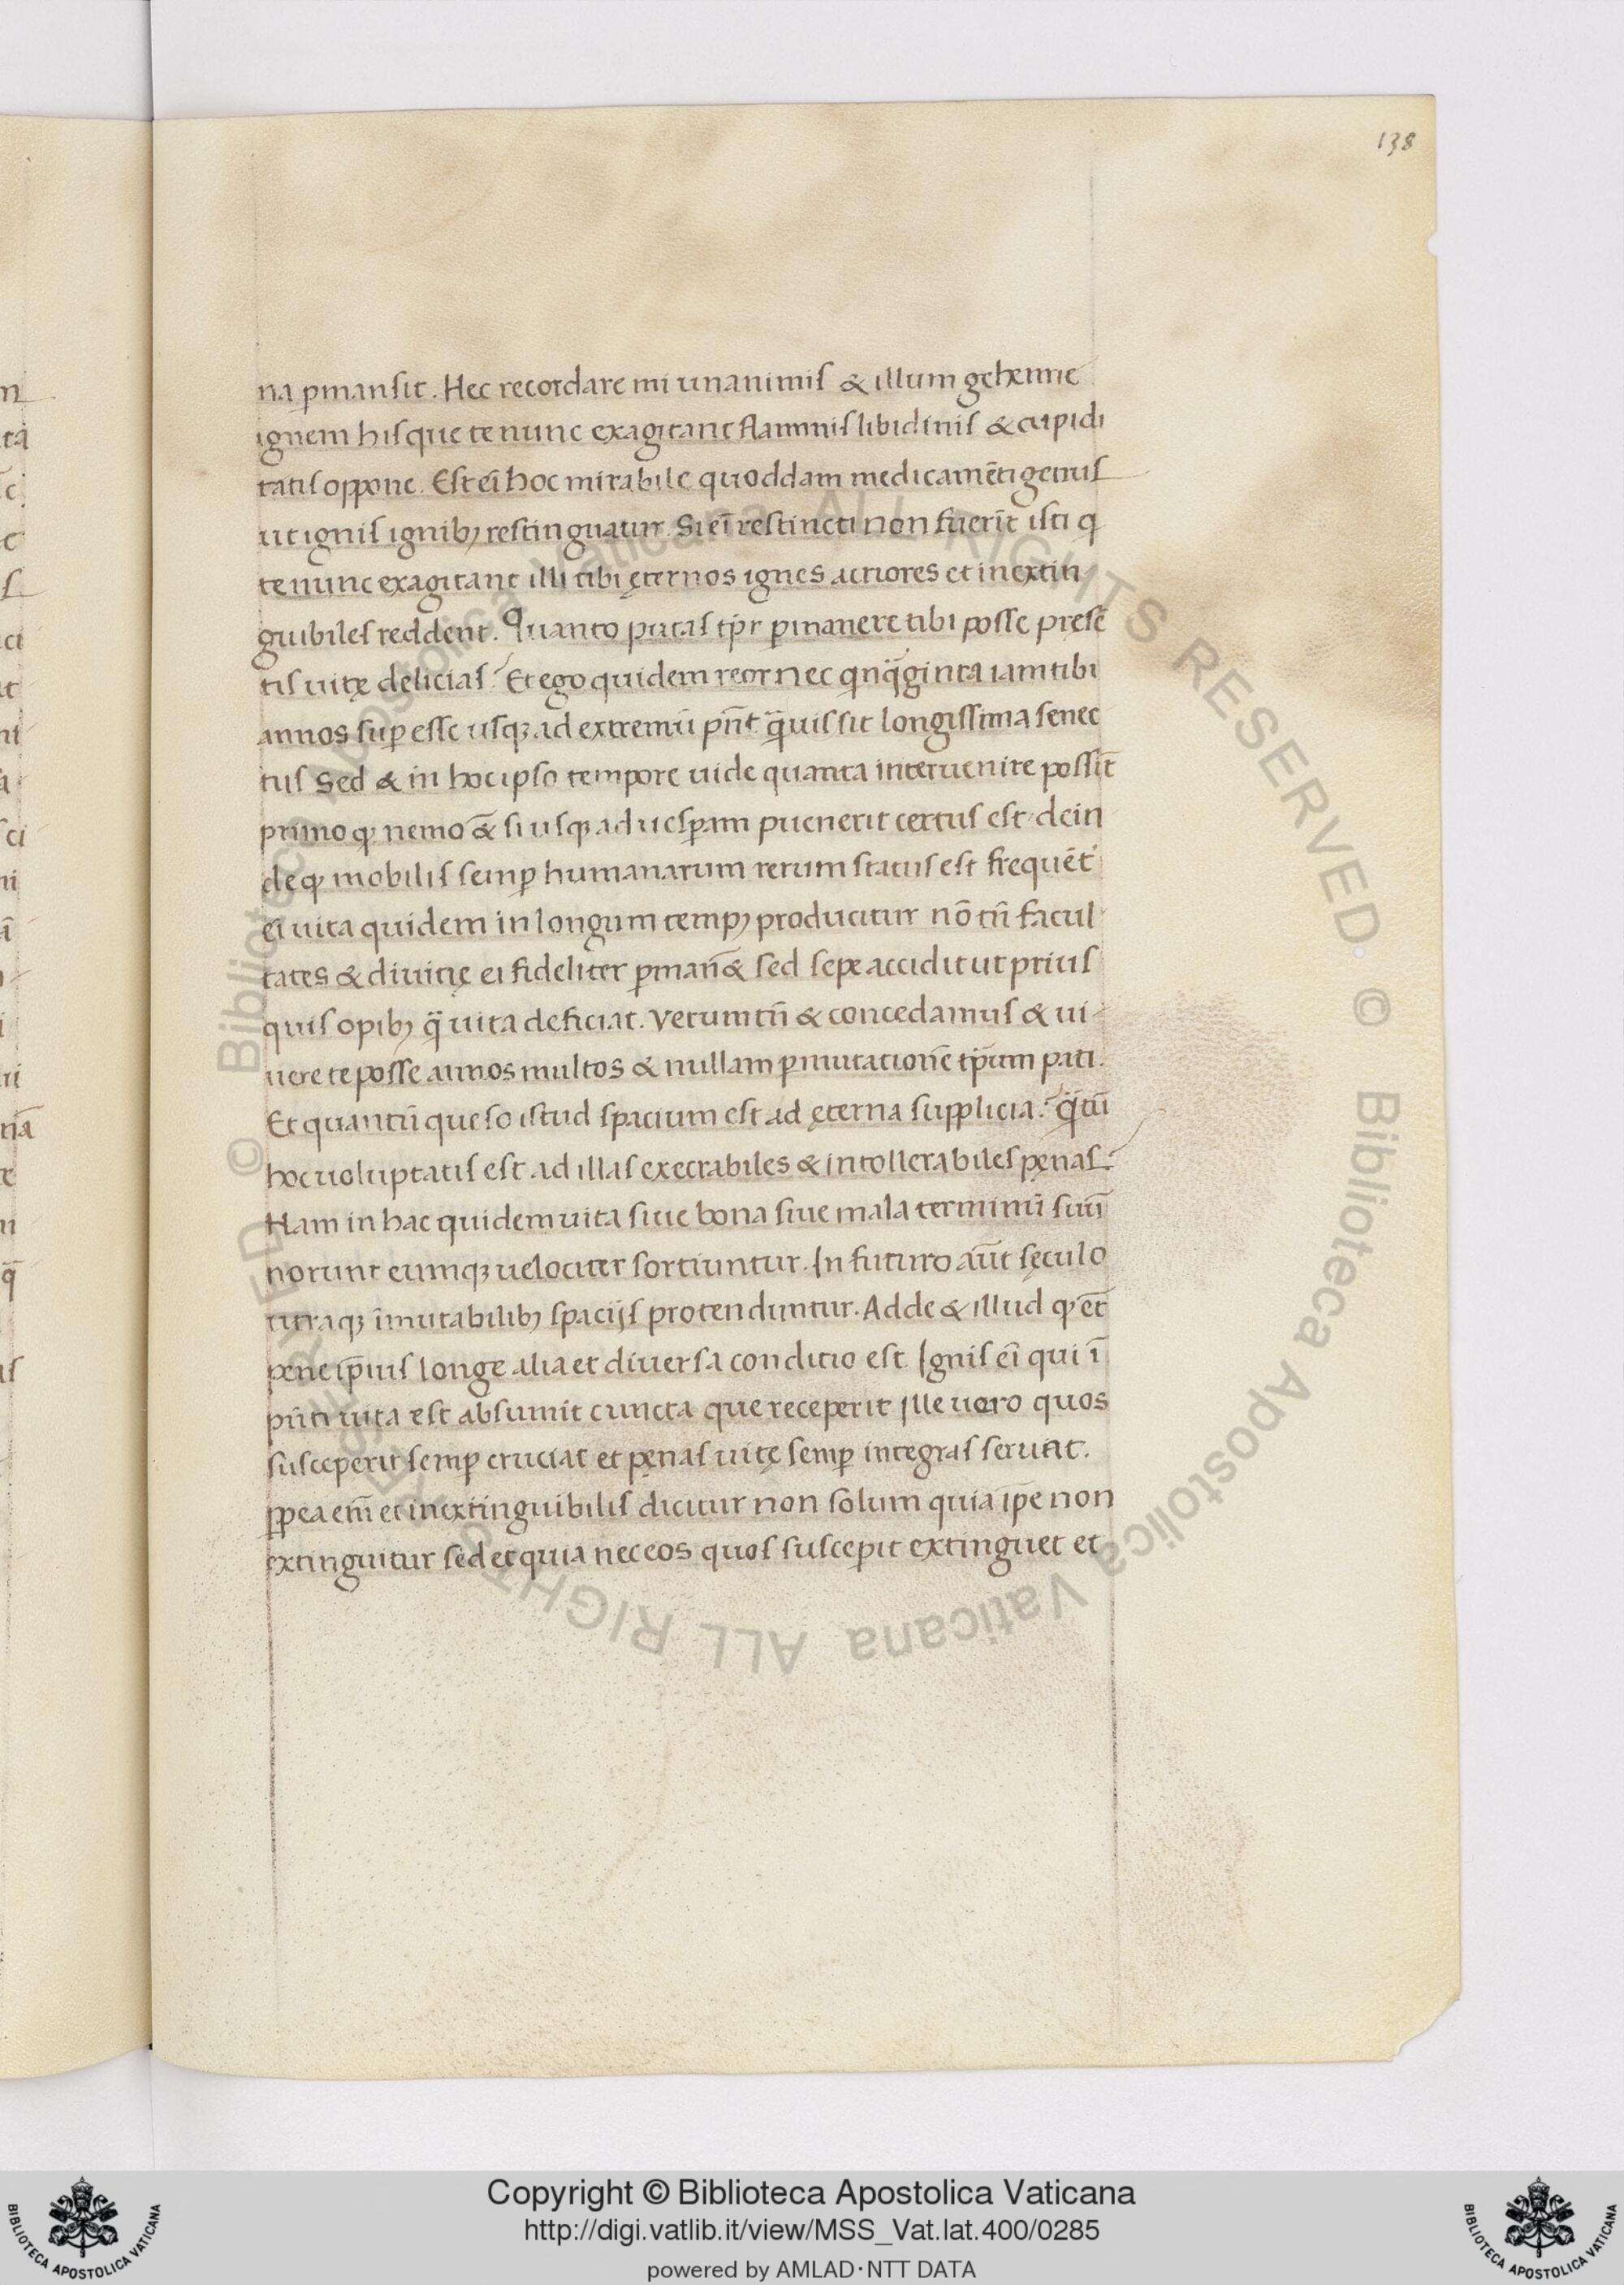 138
na ꝑmansit. Hec recordare mi unanimis & illum gehenne
ignem hisque te nunc exagitant flammis libidinis & cupidi
tatis oppone. Est eī hoc mirabile quoddam medicamēti genus
ut ignis ignibꝫ restinguatur. Si eī restincti non fuerīt isti q
te nunc exagitant illi tibi ęternos ignes acriores et inextin
guibiles reddent. Quanto putas tp̄r ꝑmanere tibi posse presē
tis uitę delicias? Et ego quidem reor nec qnq̄ginta iam tibi
annos suꝑesse usqꝫ ad extremū pn̄t q̄uis sit longissima senec
tus Sed & in hoc ipso tempore uide quanta interuenire possīt
primo qꝫ nemo & si usqꝫ ad uesꝑam puenerit certus est dein
de qꝫ mobilis semꝑ humanarum rerum status est frequēt
eī uita quidem in longum tempꝫ producitur nō tn̄ facul
tates & diuitię ei fideliter ꝑman& sed sepe accidit ut prius
quis opibꝫ q̄ uita deficiat. Verumtn̄ & concedamus & ui
uere te posse annos multos & nullam ꝑmutationē tp̄rum pati.
Et quantū queso istud spacium est ad ęterna supplicia? q̄tū
hoc uoluptatis est ad illas execrabiles & intollerabiles pęnas.
Nam in hac quidem uita siue bona siue mala terminū suū
norunt eumqꝫ uelociter sortiuntur. In futuro aūt sęculo
utraqꝫ īmutabilibꝫ spacijs protenduntur. Adde & illud qꝫ et̄
pene ip̄ius longe alia et diuersa conditio est. Ignis eī qui ī
pn̄ti uita est absumit cuncta que receperit Ille uero quos
susceperit semꝑ cruciat et pęnas uitę semꝑ integras seruat.
ꝓpea em̄ et inextinguibilis dicitur non solum quia ip̄e non
extinguitur sed et quia nec eos quos suscepit extinguet et
© Biblioteca Apostolica Vaticana ALL RIGHTS RESERVED
Copyright © Biblioteca Apostolica Vaticana
http://digi.vatlib.it/view/MSS_Vat.lat.400/0285
powered by AMLAD·NTT DATA
BIBLIOTECA APOSTOLICA VATICANA
BIBLIOTECA APOSTOLICA VATICANA